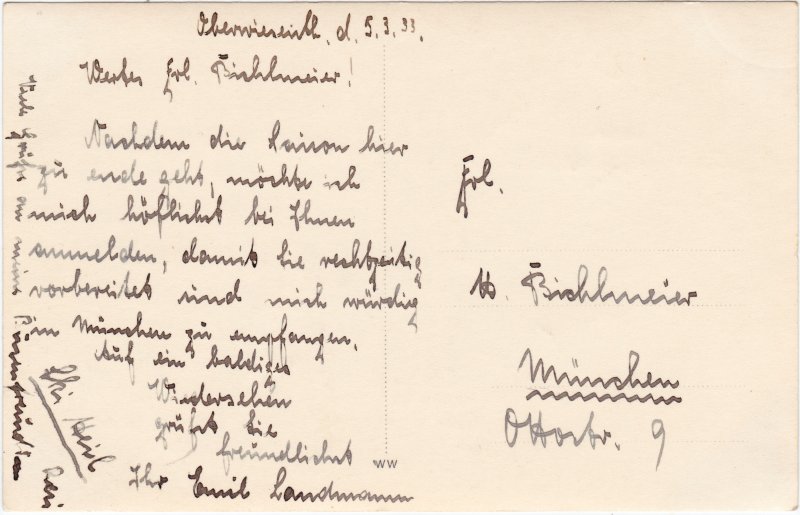 Oberwiesenth. d. 5.3.33.
Wertes Frl. Bichlmeier!
Nachdem die Saison hier
zu ende geht, möchte ich
mich höflichst bei Ihnen
anmelden, damit Sie rechtzeitig
vorbereitet sind mich würdig
in München zu empfangen.
Auf ein baldiges
Wiedersehen
grüßt Sie
freundlichst
Ihr Emil Landmann
Ski Heil
Viele Grüße an meine
Frl.
Bichlmeier
München
Ottostr. 9
WW